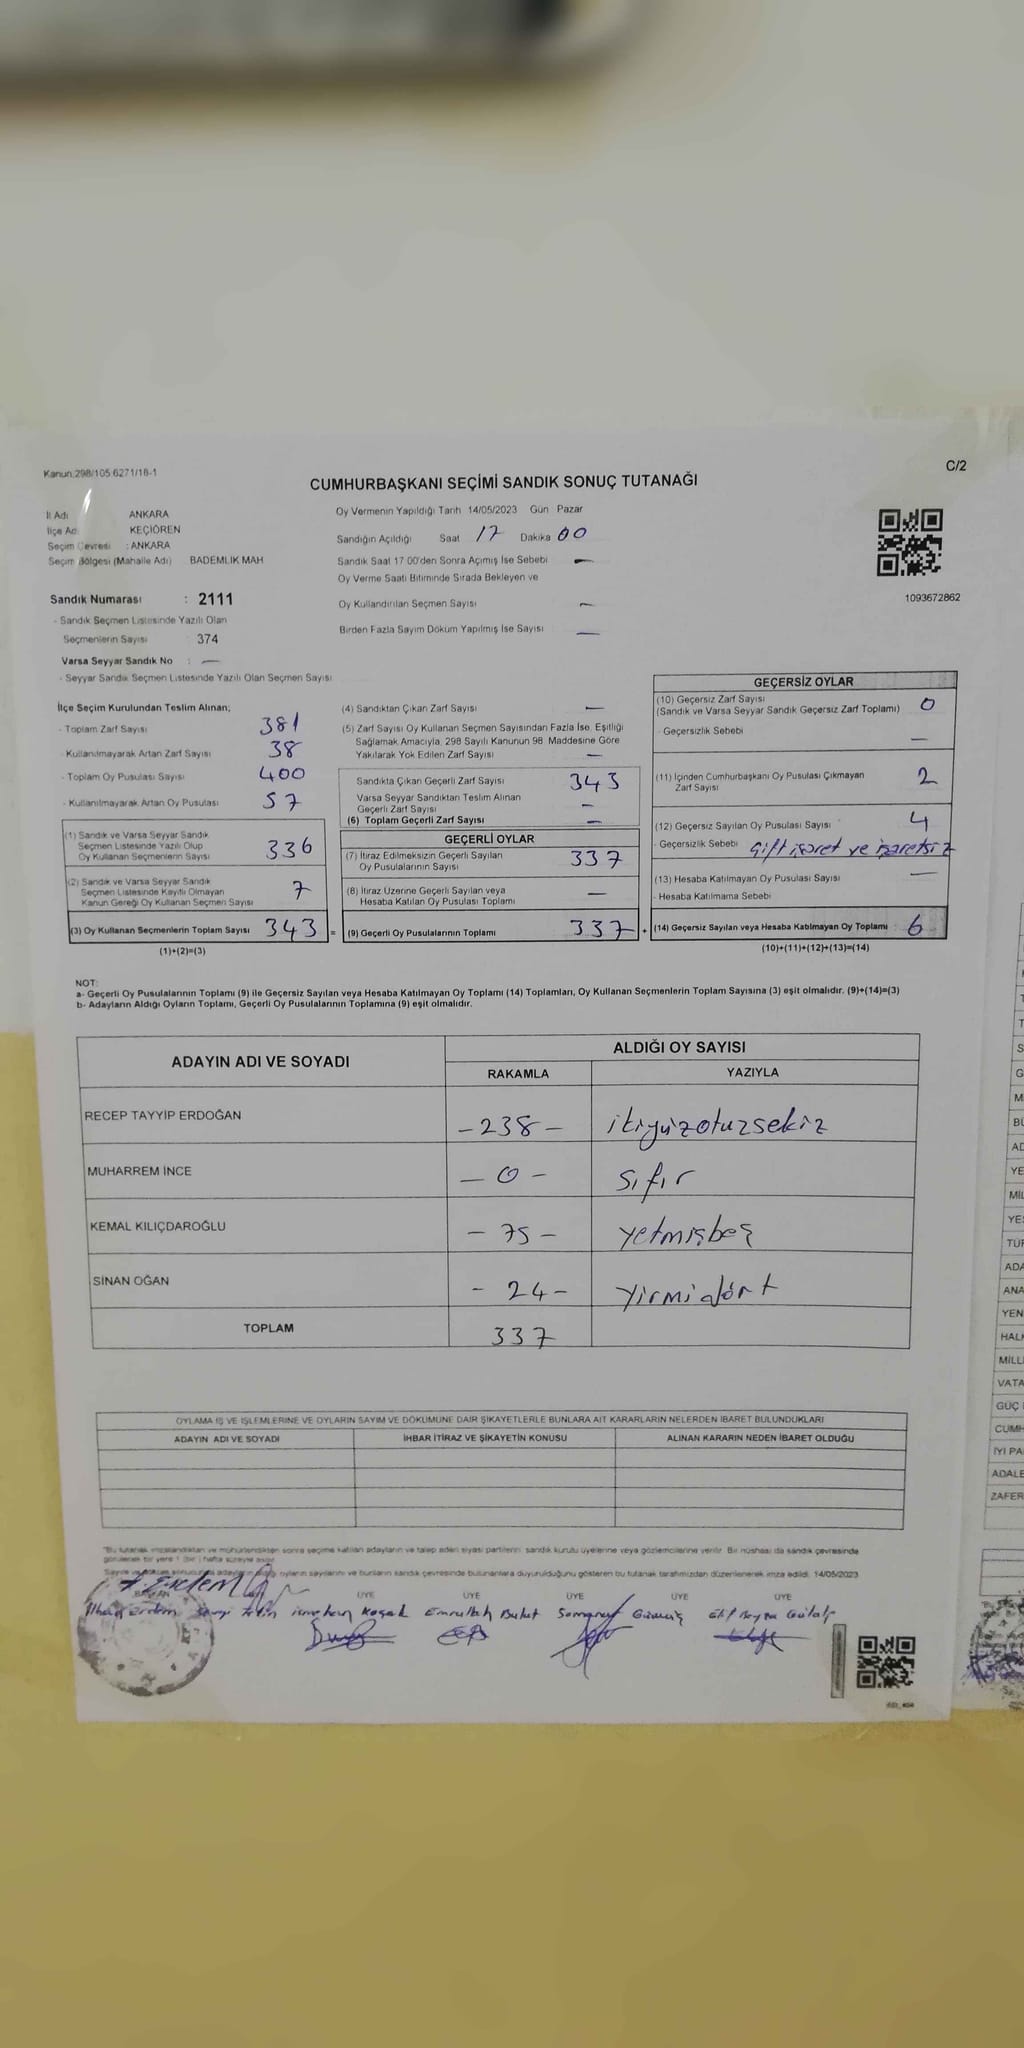 Kanun:298/105 6271/18-1
C/2
CUMHURBAŞKANI SEÇİMİ SANDIK SONUÇ TUTANAĞI
İl Adı ANKARA
İlçe Adı KEÇİÖREN
Seçim Çevresi : ANKARA
Seçim Bölgesi (Mahalle Adı) BADEMLİK MAH
Sandık Numarası : 2111
- Sandık Seçmen Listesinde Yazılı Olan
Seçmenlerin Sayısı 374
Varsa Seyyar Sandık No : —
- Seyyar Sandık Seçmen Listesinde Yazılı Olan Seçmen Sayısı
Oy Vermenin Yapıldığı Tarih 14/05/2023 Gün Pazar
Sandığın Açıldığı Saat 17 Dakika 00
Sandık Saat 17 00'den Sonra Açımış İse Sebebi —
Oy Verme Saati Bitiminde Sırada Bekleyen ve
Oy Kullandırılan Seçmen Sayısı —
Birden Fazla Sayım Döküm Yapılmış İse Sayısı —
1093672862
İlçe Seçim Kurulundan Teslim Alınan;
- Toplam Zarf Sayısı 381
- Kullanılmayarak Artan Zarf Sayısı 38
- Toplam Oy Pusulası Sayısı 400
- Kullanılmayarak Artan Oy Pusulası 57
(1) Sandık ve Varsa Seyyar Sandık
Seçmen Listesinde Yazılı Olup
Oy Kullanan Seçmenlerin Sayısı 336
(2) Sandık ve Varsa Seyyar Sandık
Seçmen Listesinde Kayıtlı Olmayan
Kanun Gereği Oy Kullanan Seçmen Sayısı 7
(3) Oy Kullanan Seçmenlerin Toplam Sayısı 343 =
(1)+(2)=(3)
(4) Sandıktan Çıkan Zarf Sayısı —
(5) Zarf Sayısı Oy Kullanan Seçmen Sayısından Fazla İse, Eşitliği
Sağlamak Amacıyla, 298 Sayılı Kanunun 98 Maddesine Göre
Yakılarak Yok Edilen Zarf Sayısı —
Sandıkta Çıkan Geçerli Zarf Sayısı 343
Varsa Seyyar Sandıktan Teslim Alınan
Geçerli Zarf Sayısı —
(6) Toplam Geçerli Zarf Sayısı —
GEÇERLİ OYLAR
(7) İtiraz Edilmeksizin Geçerli Sayılan
Oy Pusulalarının Sayısı 337
(8) İtiraz Üzerine Geçerli Sayılan veya
Hesaba Katılan Oy Pusulası Toplamı —
(9) Geçerli Oy Pusulalarının Toplamı 337 +
GEÇERSİZ OYLAR
(10) Geçersiz Zarf Sayısı
(Sandık ve Varsa Seyyar Sandık Geçersiz Zarf Toplamı) 0
- Geçersizlik Sebebi —
(11) İçinden Cumhurbaşkanı Oy Pusulası Çıkmayan
Zarf Sayısı 2
(12) Geçersiz Sayılan Oy Pusulası Sayısı 4
- Geçersizlik Sebebi Çift işaret ve işaretsiz
(13) Hesaba Katılmayan Oy Pusulası Sayısı —
- Hesaba Katılmama Sebebi
(14) Geçersiz Sayılan veya Hesaba Katılmayan Oy Toplamı 6
(10)+(11)+(12)+(13)=(14)
NOT:
a- Geçerli Oy Pusulalarının Toplamı (9) ile Geçersiz Sayılan veya Hesaba Katılmayan Oy Toplamı (14) Toplamları, Oy Kullanan Seçmenlerin Toplam Sayısına (3) eşit olmalıdır. (9)+(14)=(3)
b- Adayların Aldığı Oyların Toplamı, Geçerli Oy Pusulalarının Toplamına (9) eşit olmalıdır.
ADAYIN ADI VE SOYADI
ALDIĞI OY SAYISI
RAKAMLA YAZIYLA
RECEP TAYYİP ERDOĞAN -238- ikiyüzotuzsekiz
MUHARREM İNCE -0- sıfır
KEMAL KILIÇDAROĞLU -75- yetmişbeş
SİNAN OĞAN -24- yirmidört
TOPLAM 337
OYLAMA İŞ VE İŞLEMLERİNE VE OYLARIN SAYIM VE DÖKÜMÜNE DAİR ŞİKAYETLERLE BUNLARA AİT KARARLARIN NELERDEN İBARET BULUNDUKLARI
ADAYIN ADI VE SOYADI İHBAR İTİRAZ VE ŞİKAYETİN KONUSU ALINAN KARARIN NEDEN İBARET OLDUĞU
"Bu tutanak imzalandıktan ve mühürlendikten sonra seçime katılan adayların ve talep eden siyasi partilerin sandık kurulu üyelerine veya gözlemcilerine verilir. Bir nüshası da sandık çevresinde
görülebilen bir yere 1 (bir) hafta süreyle asılır.
oyların sayılarını ve bunların sandık çevresinde bulunanlara duyurulduğunu gösteren bu tutanak tarafımızdan düzenlenerek imza edildi. 14/05/2023
ÜYE ÜYE ÜYE ÜYE ÜYE
İlhan Erdem Koçak Emrullah Bulut Gümüş Elif Beyza
YE
MİL
YES
TÜR
ADA
ANA
YEN
HALK
MİLL
VATA
GÜÇ
CUMH
İYİ PA
ADALE
ZAFER